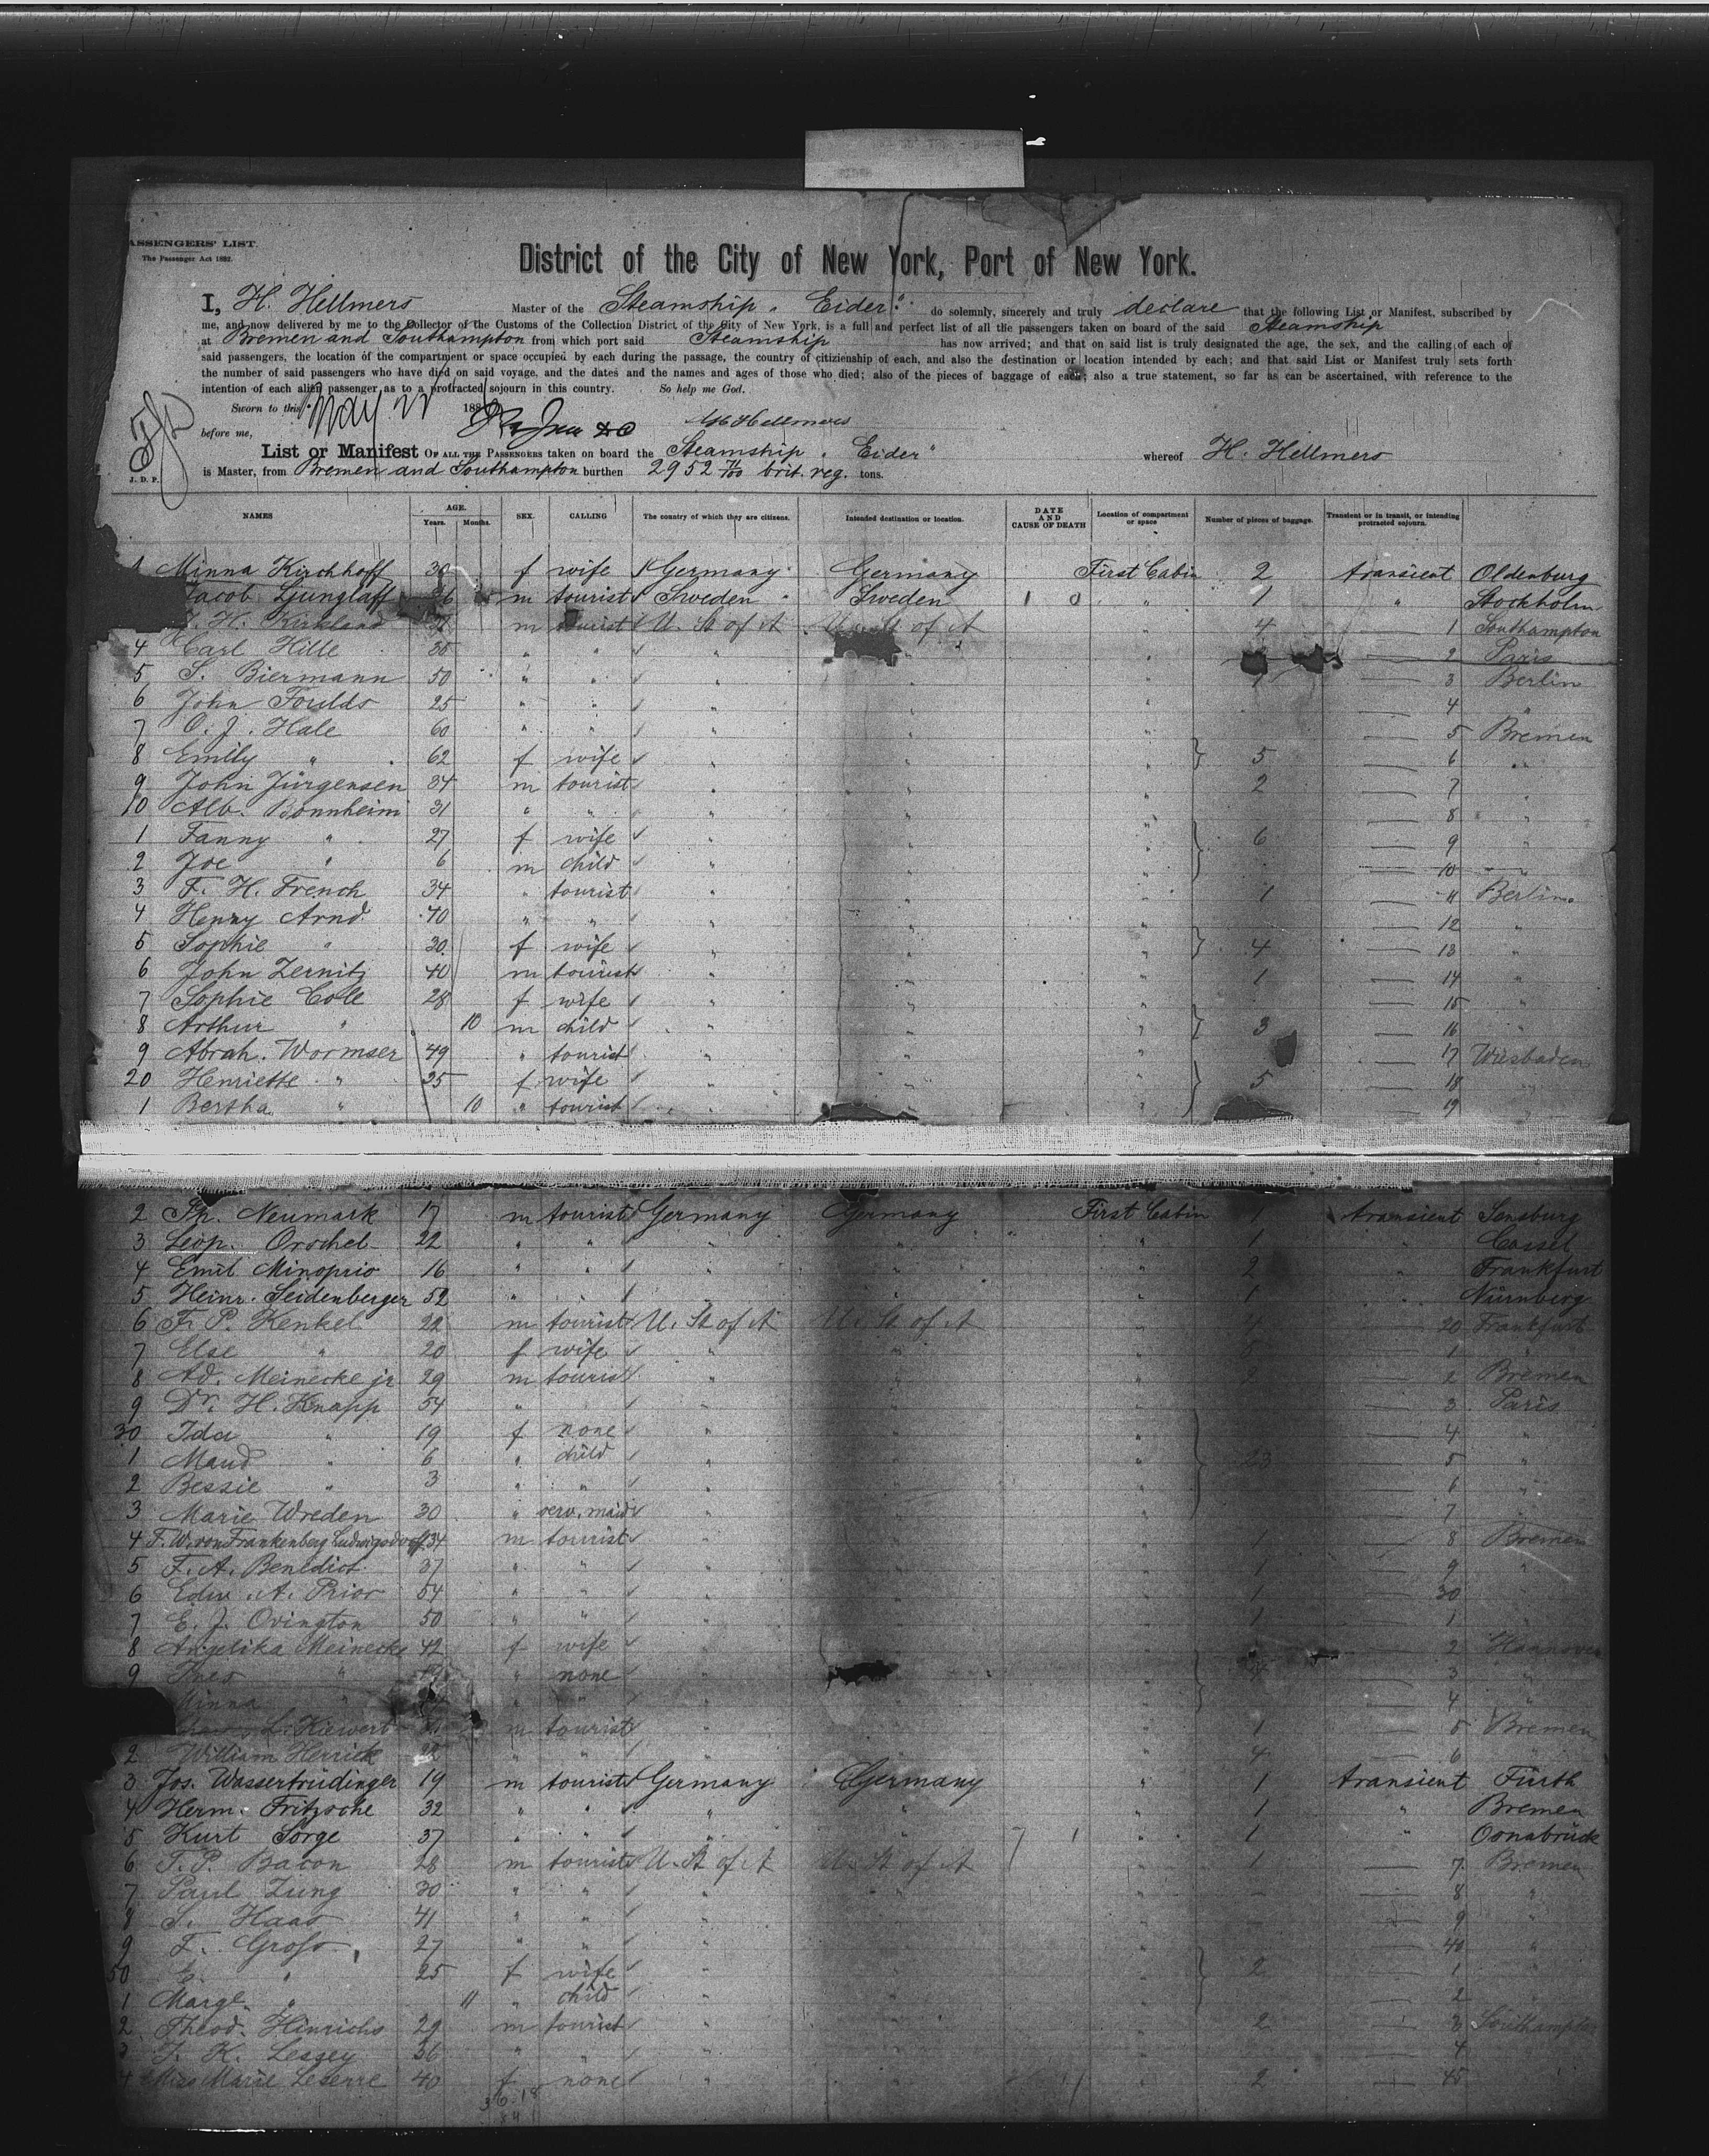 ASSENGERS' LIST.
The Passenger Act 1882.
District of the City of New York, Port of New York.
I, H. Hellmers Master of the Steamship „ Eider" do solemnly, sincerely and truly declare that the following List or Manifest, subscribed by
me, and now delivered by me to the Collector of the Customs of the Collection District of the City of New York, is a full and perfect list of all the passengers taken on board of the said Steamship
at Bremen and Southampton from which port said Steamship has now arrived; and that on said list is truly designated the age, the sex, and the calling of each of
said passengers, the location of the compartment or space occupied by each during the passage, the country of citizienship of each, and also the destination or location intended by each; and that said List or Manifest truly sets forth
the number of said passengers who have died on said voyage, and the dates and the names and ages of those who died; also of the pieces of baggage of each; also a true statement, so far as can be ascertained, with reference to the
intention of each alien passenger as to a protracted sojourn in this country. So help me God.
Sworn to this May 22 188
before me, H Hellmers
List or Manifest OF ALL THE PASSENGERS taken on board the Steamship „ Eider" whereof H. Hellmers
J. D. P. is Master, from Bremen and Southampton burthen 2952 71/100 brit. reg. tons.
NAMES AGE. Years. Months. SEX. CALLING The country of which they are citizens. Intended destination or location. DATE AND CAUSE OF DEATH Location of compartment or space Number of pieces of baggage. Transient or in transit, or intending protracted sojourn.
1 Minna Kirchhoff 30 f wife Germany Germany First Cabin 2 transient Oldenburg
Jacob Ljunglaff 36 m tourist Sweden Sweden 1 0 " 1 " Stockholm
H. Kirkland m tourist U. St of A U. St of A " 4 — 1 Southampton
4 Carl Hille 35 " " " " — 2 Paris
5 S. Biermann 50 " " " " " 1 — 3 Berlin
6 John Foulds 25 " " " " " — 4 "
7 O. J. Hale 60 " " " " " — 5 Bremen
8 Emily " 62 f wife " " " 5 — 6 "
9 John Jürgensen 34 m tourist " " " 2 — 7 "
10 Alb. Bonnheim 31 " " " " " — 8 "
1 Fanny " 27 f wife " " " 6 — 9 "
2 Joe " 6 m child " " " — 10 "
3 F. H. French 34 " tourist " " " 1 — 11 Berlin
4 Henry Arnd 40 " " " " " — 12 "
5 Sophie " 30 f wife " " " 4 — 13 "
6 John Zernitz 40 m tourist " " " 1 — 14 "
7 Sophie Cole 28 f wife " " " — 15 "
8 Arthur " 10 m child " " " 3 — 16 "
9 Abrah. Wormser 49 " tourist " " " — 17 Wiesbaden
20 Henriette " 35 f wife " " " 5 — 18 "
1 Bertha " 10 " tourist " " " — 19 "
2 Ph. Neumark 17 m tourist Germany Germany First Cabin 1 transient Sensburg
3 Leop. Orschel 22 " " " " " 1 " Cassel
4 Emil Minoprio 16 " " " " " 2 " Frankfurt
5 Heinr. Seidenberger 52 " " " " " 1 " Nürnberg
6 F. P. Kenkel 22 m tourist U. St of A U. St of A " — 20 Frankfurt
7 Else " 20 f wife " " " 5 — 1 "
8 Ad. Meinecke jr. 29 m tourist " " " 2 — 2 Bremen
9 Dr. H. Knapp 54 " " " " " — 3 Paris
30 Ida " 19 f none " " " — 4 "
1 Maud " 6 " child " " " 23 — 5 "
2 Bessie " 3 " " " " " — 6 "
3 Marie Wreden 30 " serv. maid " " " — 7 "
4 F. W. von Frankenberg Ludwigsdorff 34 m tourist " " " 1 — 8 Bremen
5 F. A. Benedict 37 " " " " " 1 — 9 "
6 Edw. A. Prior 54 " " " " " 1 — 30 "
7 E. J. Ovington 50 " " " " " 1 — 1 "
8 Angelika Meinecke 42 f wife " " " — 2 Hannover
9 Ines " " none " " — 3 "
Minna " " " " " — 4 "
L. Kiewert m tourist " " " 1 — 5 Bremen
2 William Herrick 22 " " " " " 4 — 6 "
3 Jos. Wassertrüdinger 19 m tourist Germany Germany " 1 transient Fürth
4 Herm. Fritzsche 32 " " " " " 1 " Bremen
5 Kurt Sorge 37 " " " " 7 1 " 1 " Osnabrück
6 T. P. Bacon 28 m tourist U. St of A U. St of A " 1 — 7 Bremen
7 Paul Zung 30 " " " " " — 8 "
8 S. Haas 41 " " " " " — 9 "
9 F. Gross 27 " " " " " — 40 "
50 E. " 25 f wife " " " 2 — 1 "
1 Marg. " 11 " child " " " — 2 "
2 Theod. Hinrichs 29 m tourist " " " 2 — 3 Southampton
3 F. K. Lessey 36 " " " " " — 4 "
4 Miss Marie Leserre 40 f none " " " 2 — 45 "